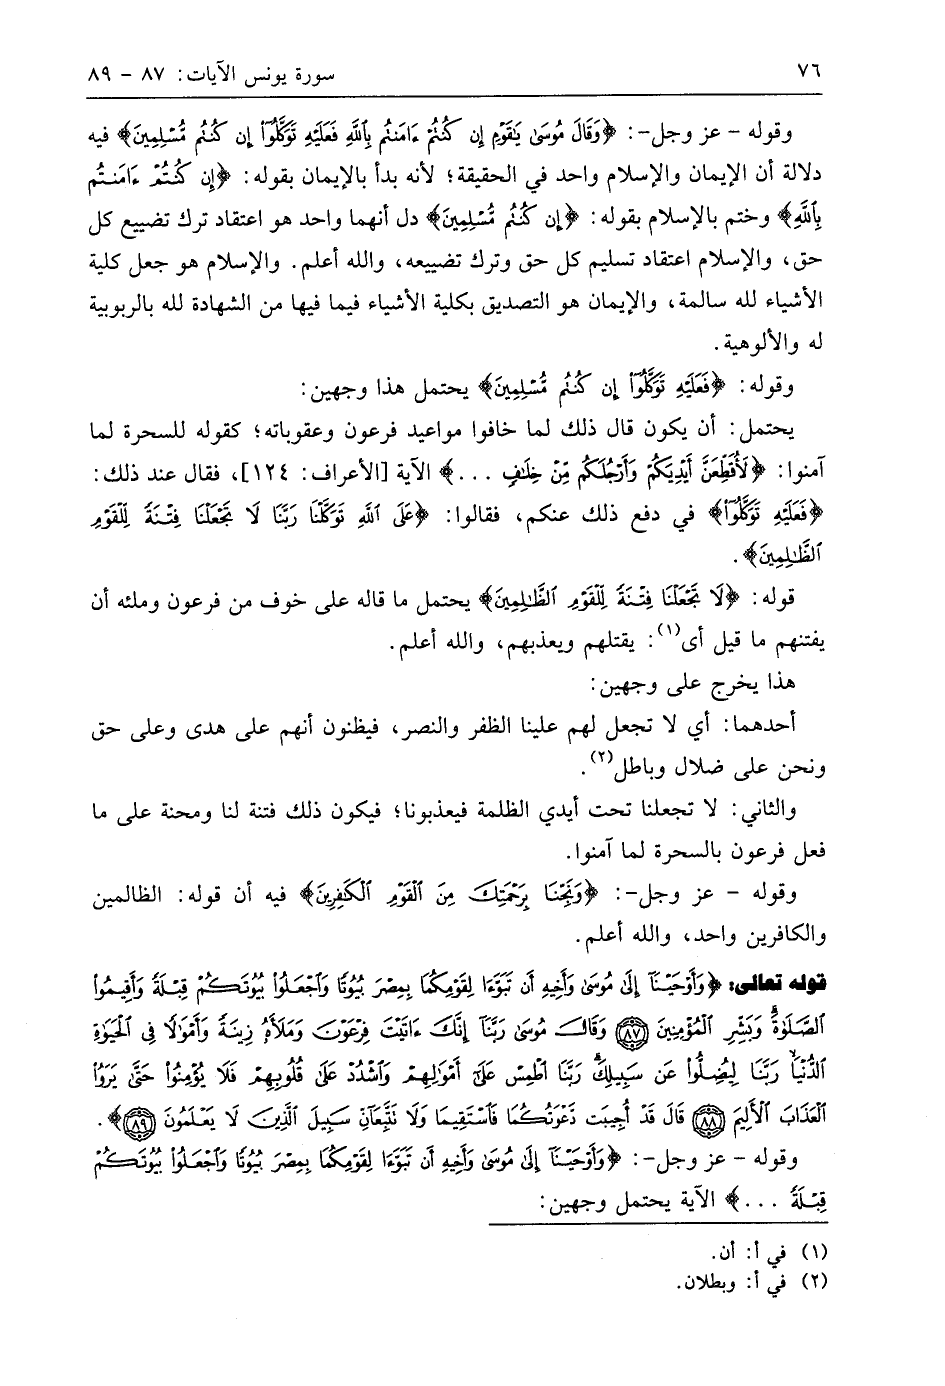 ٧٦ سورة يونس الآيات: ٨٧ - ٨٩
وقوله - عز وجل-: ﴿وَقَالَ مُوسَىٰ يَٰقَوْمِ إِن كُنتُمْ ءَامَنتُم بِٱللَّهِ فَعَلَيْهِ تَوَكَّلُوٓا۟ إِن كُنتُم مُّسْلِمِينَ﴾ فيه
دلالة أن الإيمان والإسلام واحد في الحقيقة؛ لأنه بدأ بالإيمان بقوله: ﴿إِن كُنتُمْ ءَامَنتُم
بِٱللَّهِ﴾ وختم بالإسلام بقوله: ﴿إِن كُنتُم مُّسْلِمِينَ﴾ دل أنهما واحد هو اعتقاد ترك تضييع كل
حق، والإسلام اعتقاد تسليم كل حق وترك تضييعه، والله أعلم. والإسلام هو جعل كلية
الأشياء لله سالمة، والإيمان هو التصديق بكلية الأشياء فيما فيها من الشهادة لله بالربوبية
له والألوهية.
وقوله: ﴿فَعَلَيْهِ تَوَكَّلُوٓا۟ إِن كُنتُم مُّسْلِمِينَ﴾ يحتمل هذا وجهين:
يحتمل: أن يكون قال ذلك لما خافوا مواعيد فرعون وعقوباته؛ كقوله للسحرة لما
آمنوا: ﴿لَأُقَطِّعَنَّ أَيْدِيَكُمْ وَأَرْجُلَكُم مِّنْ خِلَٰفٍ ...﴾ الآية [الأعراف: ١٢٤]، فقال عند ذلك:
﴿فَعَلَيْهِ تَوَكَّلُوٓا۟﴾ في دفع ذلك عنكم، فقالوا: ﴿عَلَى ٱللَّهِ تَوَكَّلْنَا رَبَّنَا لَا تَجْعَلْنَا فِتْنَةً لِّلْقَوْمِ
ٱلظَّٰلِمِينَ﴾.
قوله: ﴿لَا تَجْعَلْنَا فِتْنَةً لِّلْقَوْمِ ٱلظَّٰلِمِينَ﴾ يحتمل ما قاله على خوف من فرعون وملئه أن
يفتنهم ما قيل أى(١): يقتلهم ويعذبهم، والله أعلم.
هذا يخرج على وجهين:
أحدهما: أي لا تجعل لهم علينا الظفر والنصر، فيظنون أنهم على هدى وعلى حق
ونحن على ضلال وباطل(٢).
والثاني: لا تجعلنا تحت أيدي الظلمة فيعذبونا؛ فيكون ذلك فتنة لنا ومحنة على ما
فعل فرعون بالسحرة لما آمنوا.
وقوله - عز وجل-: ﴿وَنَجِّنَا بِرَحْمَتِكَ مِنَ ٱلْقَوْمِ ٱلْكَٰفِرِينَ﴾ فيه أن قوله: الظالمين
والكافرين واحد، والله أعلم.
قوله تعالى: ﴿وَأَوْحَيْنَآ إِلَىٰ مُوسَىٰ وَأَخِيهِ أَن تَبَوَّءَا لِقَوْمِكُمَا بِمِصْرَ بُيُوتًا وَٱجْعَلُوا۟ بُيُوتَكُمْ قِبْلَةً وَأَقِيمُوا۟
ٱلصَّلَوٰةَ وَبَشِّرِ ٱلْمُؤْمِنِينَ ٨٧ وَقَالَ مُوسَىٰ رَبَّنَآ إِنَّكَ ءَاتَيْتَ فِرْعَوْنَ وَمَلَأَهُۥ زِينَةً وَأَمْوَٰلًا فِى ٱلْحَيَوٰةِ
ٱلدُّنْيَا رَبَّنَا لِيُضِلُّوا۟ عَن سَبِيلِكَ رَبَّنَا ٱطْمِسْ عَلَىٰٓ أَمْوَٰلِهِمْ وَٱشْدُدْ عَلَىٰ قُلُوبِهِمْ فَلَا يُؤْمِنُوا۟ حَتَّىٰ يَرَوُا۟
ٱلْعَذَابَ ٱلْأَلِيمَ ٨٨ قَالَ قَدْ أُجِيبَت دَّعْوَتُكُمَا فَٱسْتَقِيمَا وَلَا تَتَّبِعَآنِّ سَبِيلَ ٱلَّذِينَ لَا يَعْلَمُونَ ٨٩﴾.
وقوله - عز وجل-: ﴿وَأَوْحَيْنَآ إِلَىٰ مُوسَىٰ وَأَخِيهِ أَن تَبَوَّءَا لِقَوْمِكُمَا بِمِصْرَ بُيُوتًا وَٱجْعَلُوا۟ بُيُوتَكُمْ
قِبْلَةً ...﴾ الآية يحتمل وجهين:
(١) في أ: أن.
(٢) في أ: وبطلان.